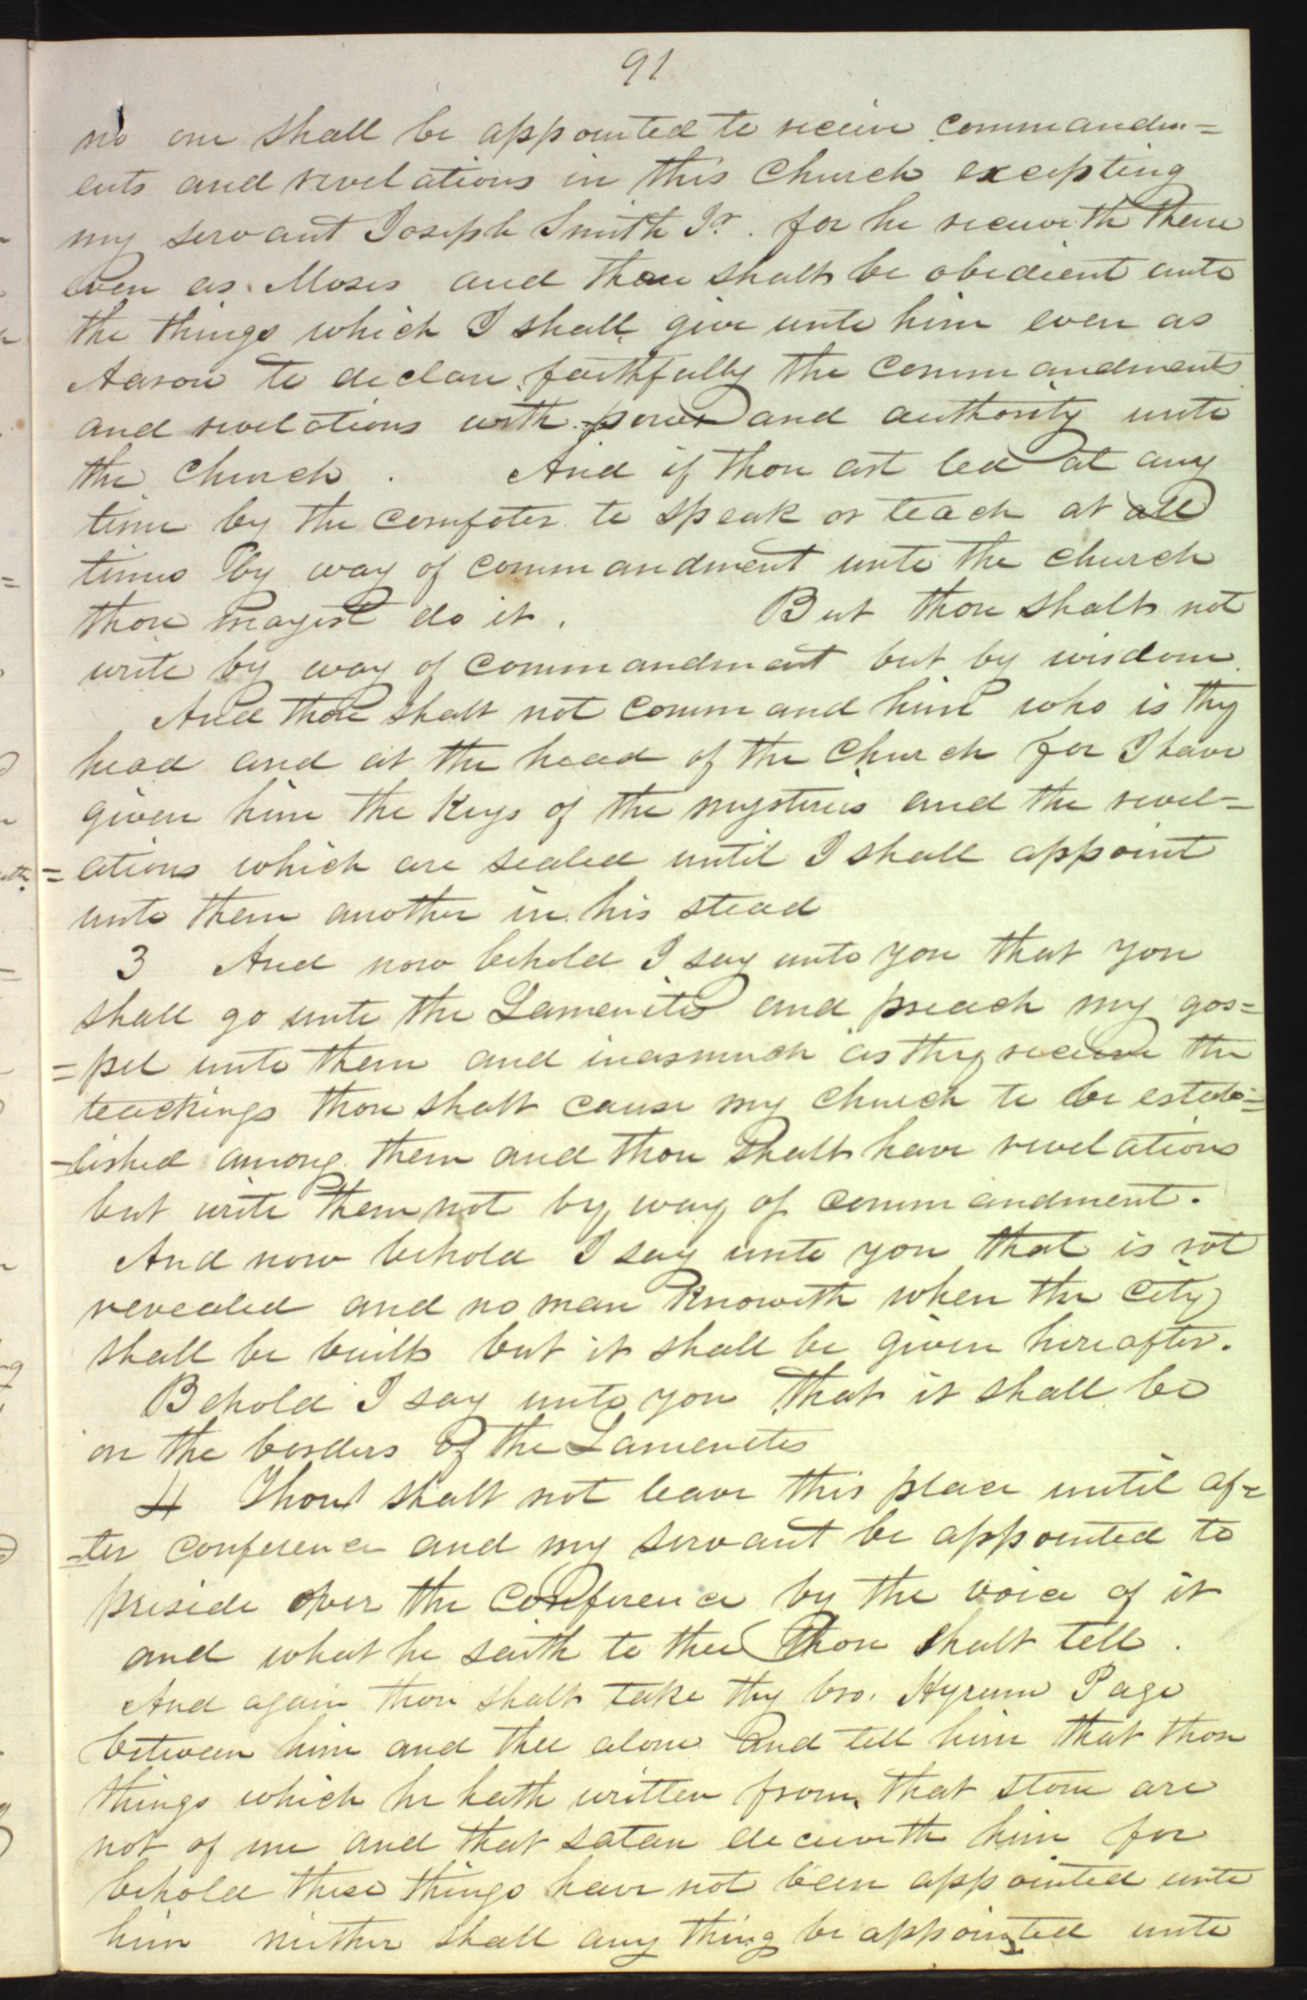 91
no one shall be appointed to receive commandm=
ents and revelations in this church excepting
my servant Joseph Smith Jr. for he receiveth them
even as Moses and thou shalt be obedient unto
the things which I shall give unto him even as
Aaron to declare faithfully the commandments
and revelations with power and authority unto
the church. And if thou art led at any
time by the comfoter to speak or teach at all
times by way of commandment unto the church
thou mayest do it. But thou shalt not
write by way of commandment but by wisdom
And thou shalt not command him who is thy
head and at the head of the church for I have
given him the Keys of the mysteries and the revel=
=ations which are sealed until I shall appoint
unto them another in his stead
3 And now behold I say unto you that you
shall go unto the Lamenites and preach my gos=
=pel unto them and inasmuch as they receive the
teachings thou shalt cause my church to be estab=
=lished among them and thou shalt have revelations
but write them not by way of commandment.
And now behold I say unto you that is not
revealed and no man knoweth when the city
shall be built but it shall be given hereafter.
Behold I say unto you that it shall be
on the borders of the Lamenites
4 Thou shalt not leave this place until af=
=ter conference and my servant be appointed to
preside over the conference by the voice of it
and what he saith to thee thou shalt tell.
And again thou shalt take thy bro. Hyrum Page
between him and thee alone and tell him that thos
things which he hath written from that stone are
not of me and that satan deceiveth him for
behold these things have not been appointed unto
him neither shall any thing be appointed unto